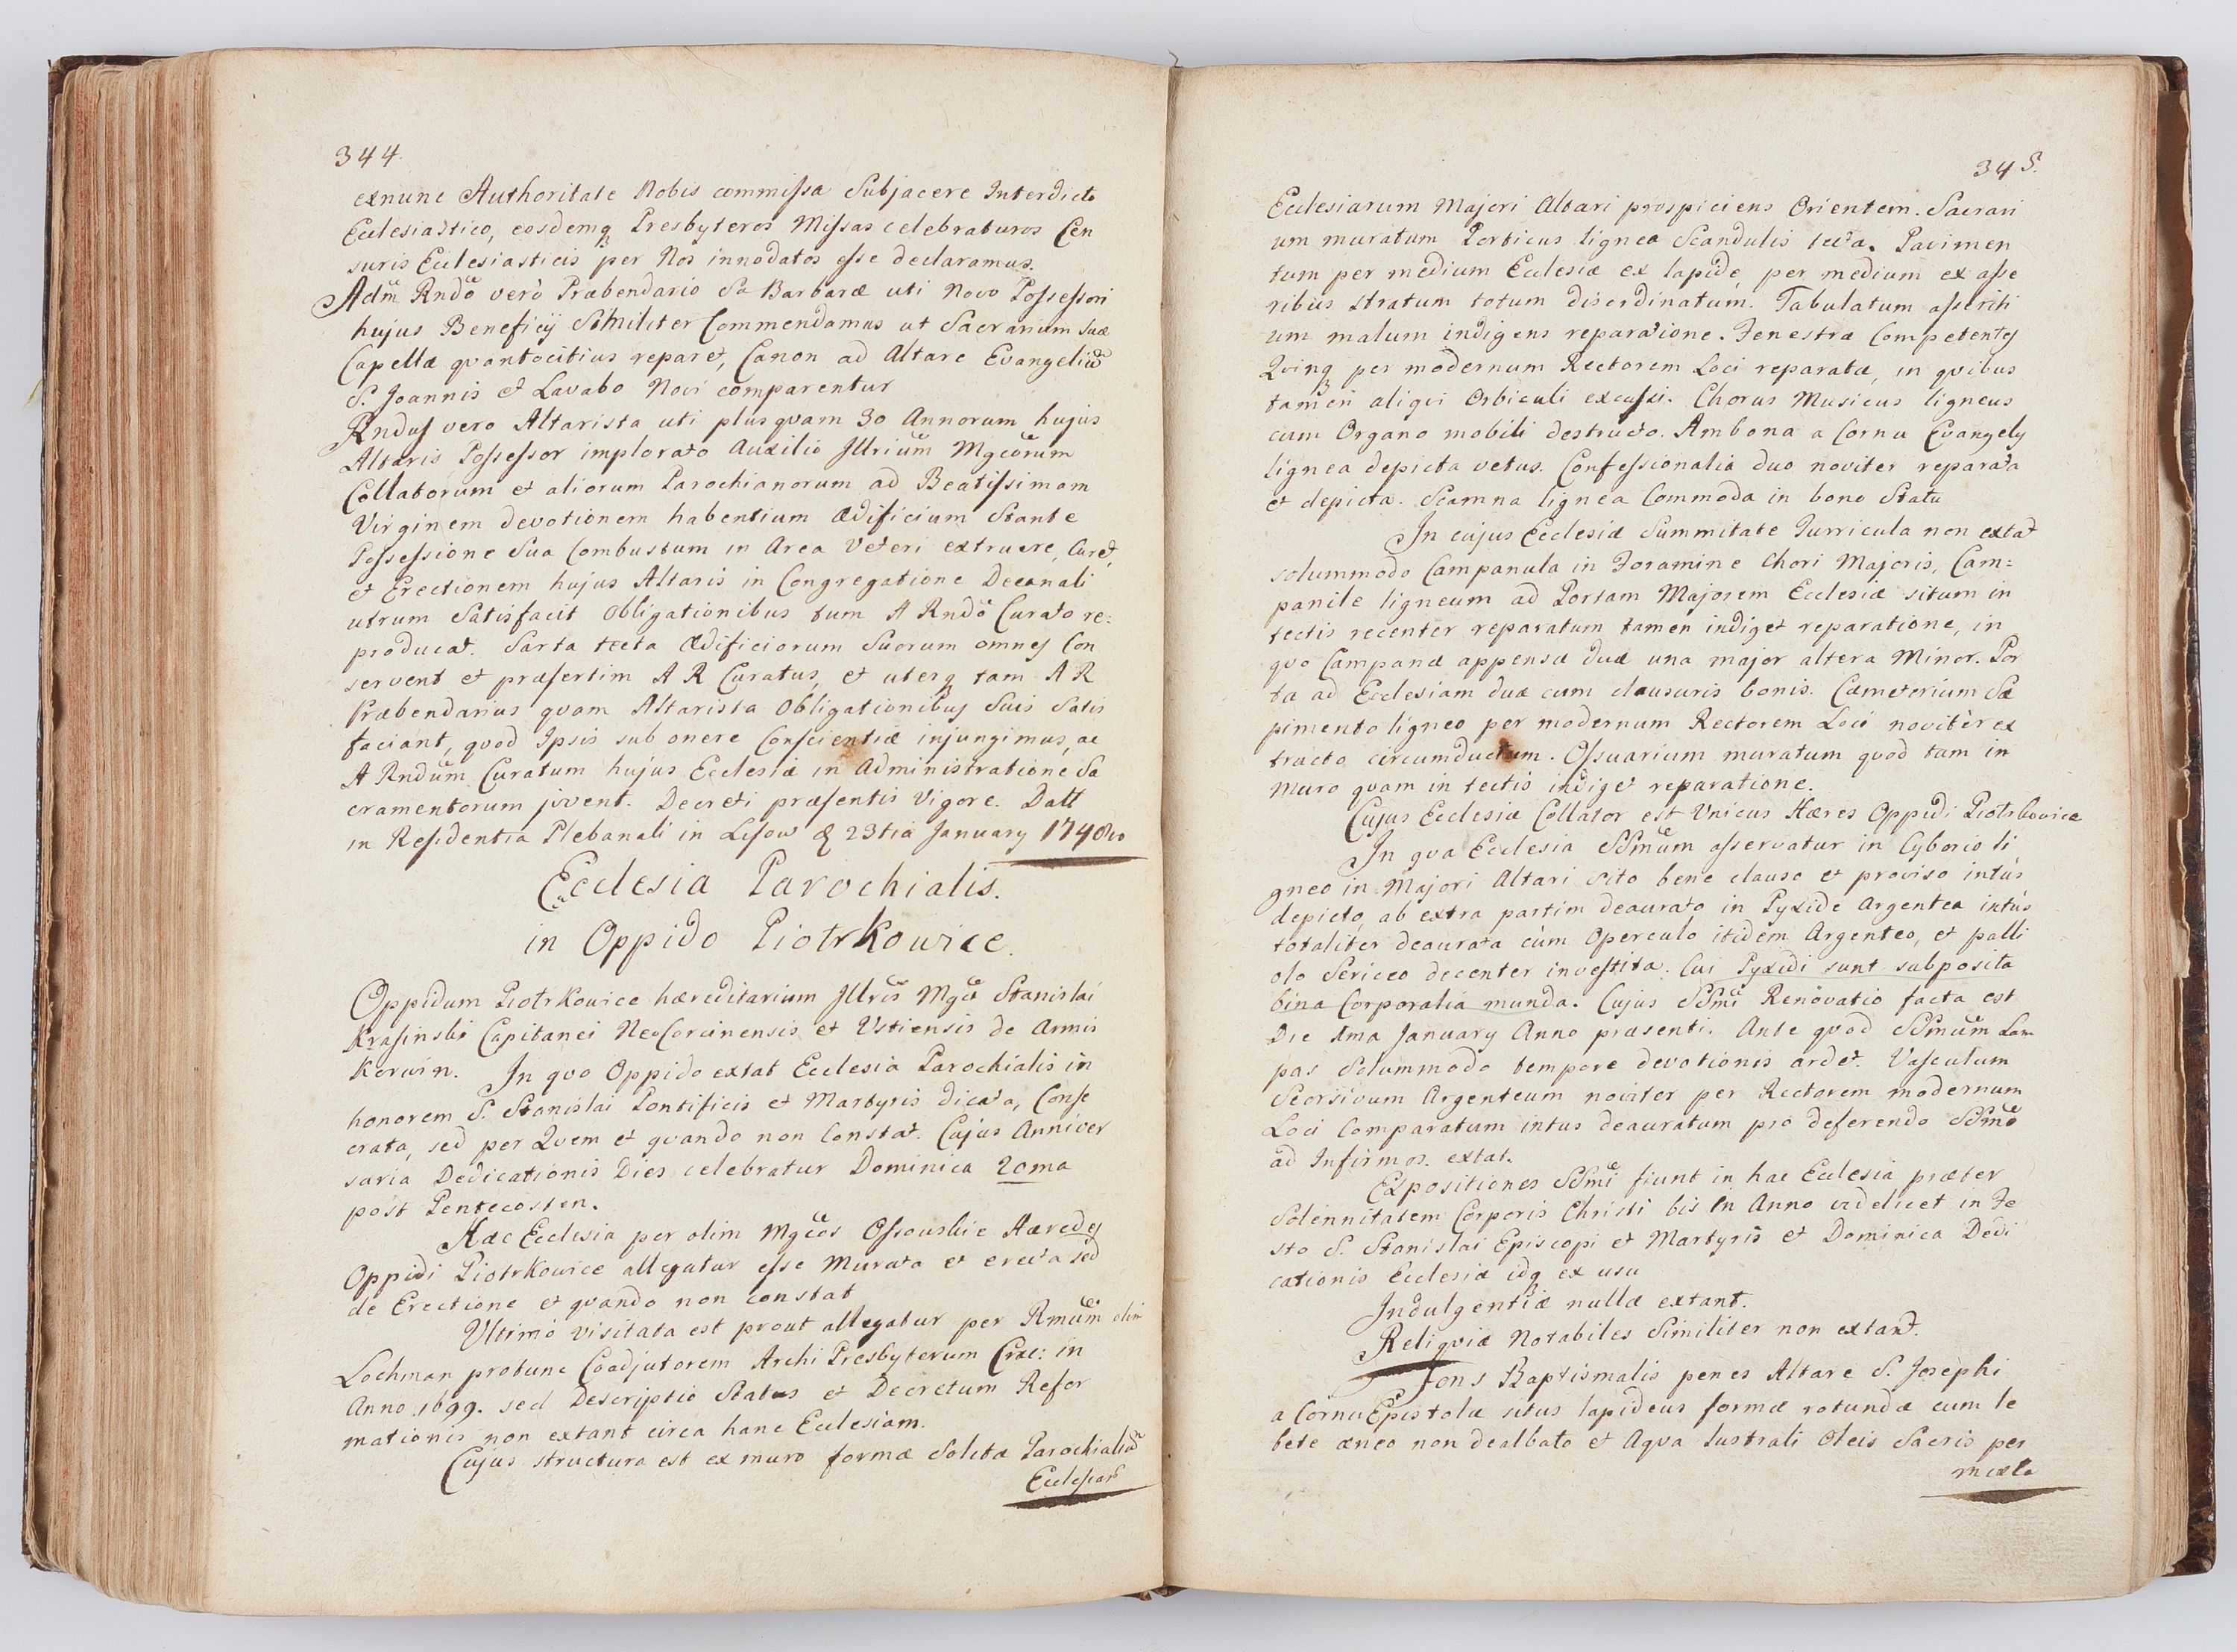 344
exnunc Authoritate Nobis commissa Subjacere Interdicto
Ecclesiastico, eosdemq Presbyteros Missas celebraturos Cen
suris Ecclesiasticis per Nos innodatos esse declaramus.
Adm Rndo vero Præbendario Sæ Barbaræ uti Novo Possessori
hujus Beneficij Similiter Commendamus ut Sacrarium Suæ
Capellæ qvantocitius reparet, Canon ad Altare Evangeliu
S. Joannis et Lavabo Novi comparentur
Rndus vero Altarista uti plusqvam 30 Annorum hujus
Altaris Possessor implorato Auxilio Jllrium Mgcorum
Collatorum et aliorum Parochianorum ad Beatissimam
Virginem devotionem habentium Ædificium Stante
Possessione Sua Combustum in Area Veteri extruere, Curet,
et Erectionem hujus Altaris in Congregatione Decanali
utrum Satisfacit Obligationibus tum A Rndo Curato re:
producat. Sarta tecta Ædificiorum Suorum omnes Con
servent et præsertim A R Curatus, et uterq tam A R
Præbendarius qvam Altarista Obligationibus Suis Satis
faciant, qvod Ipsis sub onere Conscientiæ injungimus, ac
A Rndum Curatum hujus Ecclesiæ in Administratione Sa
cramentorum juvent. Decreti præsentis Vigore. Datt
in Residentia Plebanali in Lisow 23tia January 1748vo
Ecclesia Parochialis.
in Oppido Piotrkowice.
Oppidum Piotrkowice hæreditarium Jllris Mgci Stanislai
Krasinski Capitanei NeoCorcinensis et Ustiensis de Armis
Korwin. In qvo Oppido extat Ecclesia Parochialis in
honorem S. Stanislai Pontificis et Martyris dicata, Conse
crata, sed per Qvem et qvando non Constat. Cujus Anniver
saria Dedicationis Dies celebratur Dominica 20ma
post Pentecosten.
Hæc Ecclesia per olim Mgcos Ossowskie Hæredes
Oppidi Piotrkowice allegatur esse Murata et erecta sed
de Erectione et qvando non constat
Ultimo visitata est prout allegatur per Rmum olim
Lochman protunc Coadjutorem Archi Presbyterum Crac: in
Anno 1699. sed Descriptio Status et Decretum Refor
mationis non extant circa hanc Ecclesiam.
Cujus structura est ex muro formæ Solitæ Parochialiu
Ecclesiar
345.
Ecclesiarum Majori Altari prospiciens Orientem. Sacrari
um muratum Porticus lignea Scandulis tecta. Pavimen
tum per medium Ecclesiæ ex lapide, per medium ex asse
ribus stratum totum disordinatum. Tabulatum asseriti
um malum indigens reparatione. Fenestræ Competentes
Qvinq per modernum Rectorem Loci reparatæ, in qvibus
tamen aliqvi Orbiculi excussi. Chorus Musicus ligneus
cum Organo mobili destructo. Ambona a Cornu Evangely
lignea depicta vetus. Confessionalia duo noviter reparata
et depicta. Scamna lignea Commoda in bono Statu
In cujus Ecclesiæ Summitate Turricula non extat
solummodo Campanula in Foramine Chori Majoris, Cam=
panile ligneum ad Portam Majorem Ecclesiæ situm in
tectis recenter reparatum tamen indiget reparatione, in
qvo Campanæ appensæ duæ una major altera Minor. Por
tæ ad Ecclesiam duæ cum clausuris bonis. Cæmeterium Sæ
pimento ligneo per modernum Rectorem Loci noviter ex
tructo circumductum. Ossuarium muratum qvod tam in
Muro qvam in tectis indiget reparatione.
Cujus Ecclesiæ Collator est Unicus Hæres Oppidi Piotrkowice
In qva Ecclesia SSmum asservatur in Cyborio li
gneo in Majori Altari sito bene clauso et proviso intus
depicto, ab extra partim deaurato in Pyxide Argentea intus
totaliter deaurata cum Operculo itidem Argenteo, et palli
olo Sericeo decenter investita. Cui Pyxidi sunt subposita
bina Corporalia munda. Cujus SSmi Renovatio facta est
Die 1ma January Anno præsenti. Ante qvod SSmum Lam
pas Solummodo tempore devotionis ardet. Vasculum
Seorsivum Argenteum noviter per Rectorem modernum
Loci Comparatum intus deauratum pro deferendo SSmo
ad Infirmos extat.
Expositiones SSmi fiunt in hac Ecclesia præter
Solennitatem Corporis Christi bis In Anno videlicet in Fe
sto S. Stanislai Episcopi et Martyris et Dominica Dedi
cationis Ecclesiæ idq ex usu
Indulgentiæ nullæ extant.
Reliqviæ Notabiles Similiter non extant.
Fons Baptismalis penes Altare S. Josephi
a Cornu Epistolæ situs lapideus formæ rotundæ cum le
bete æneo non dealbato et Aqva lustrali Oleis Sacris per
mixta